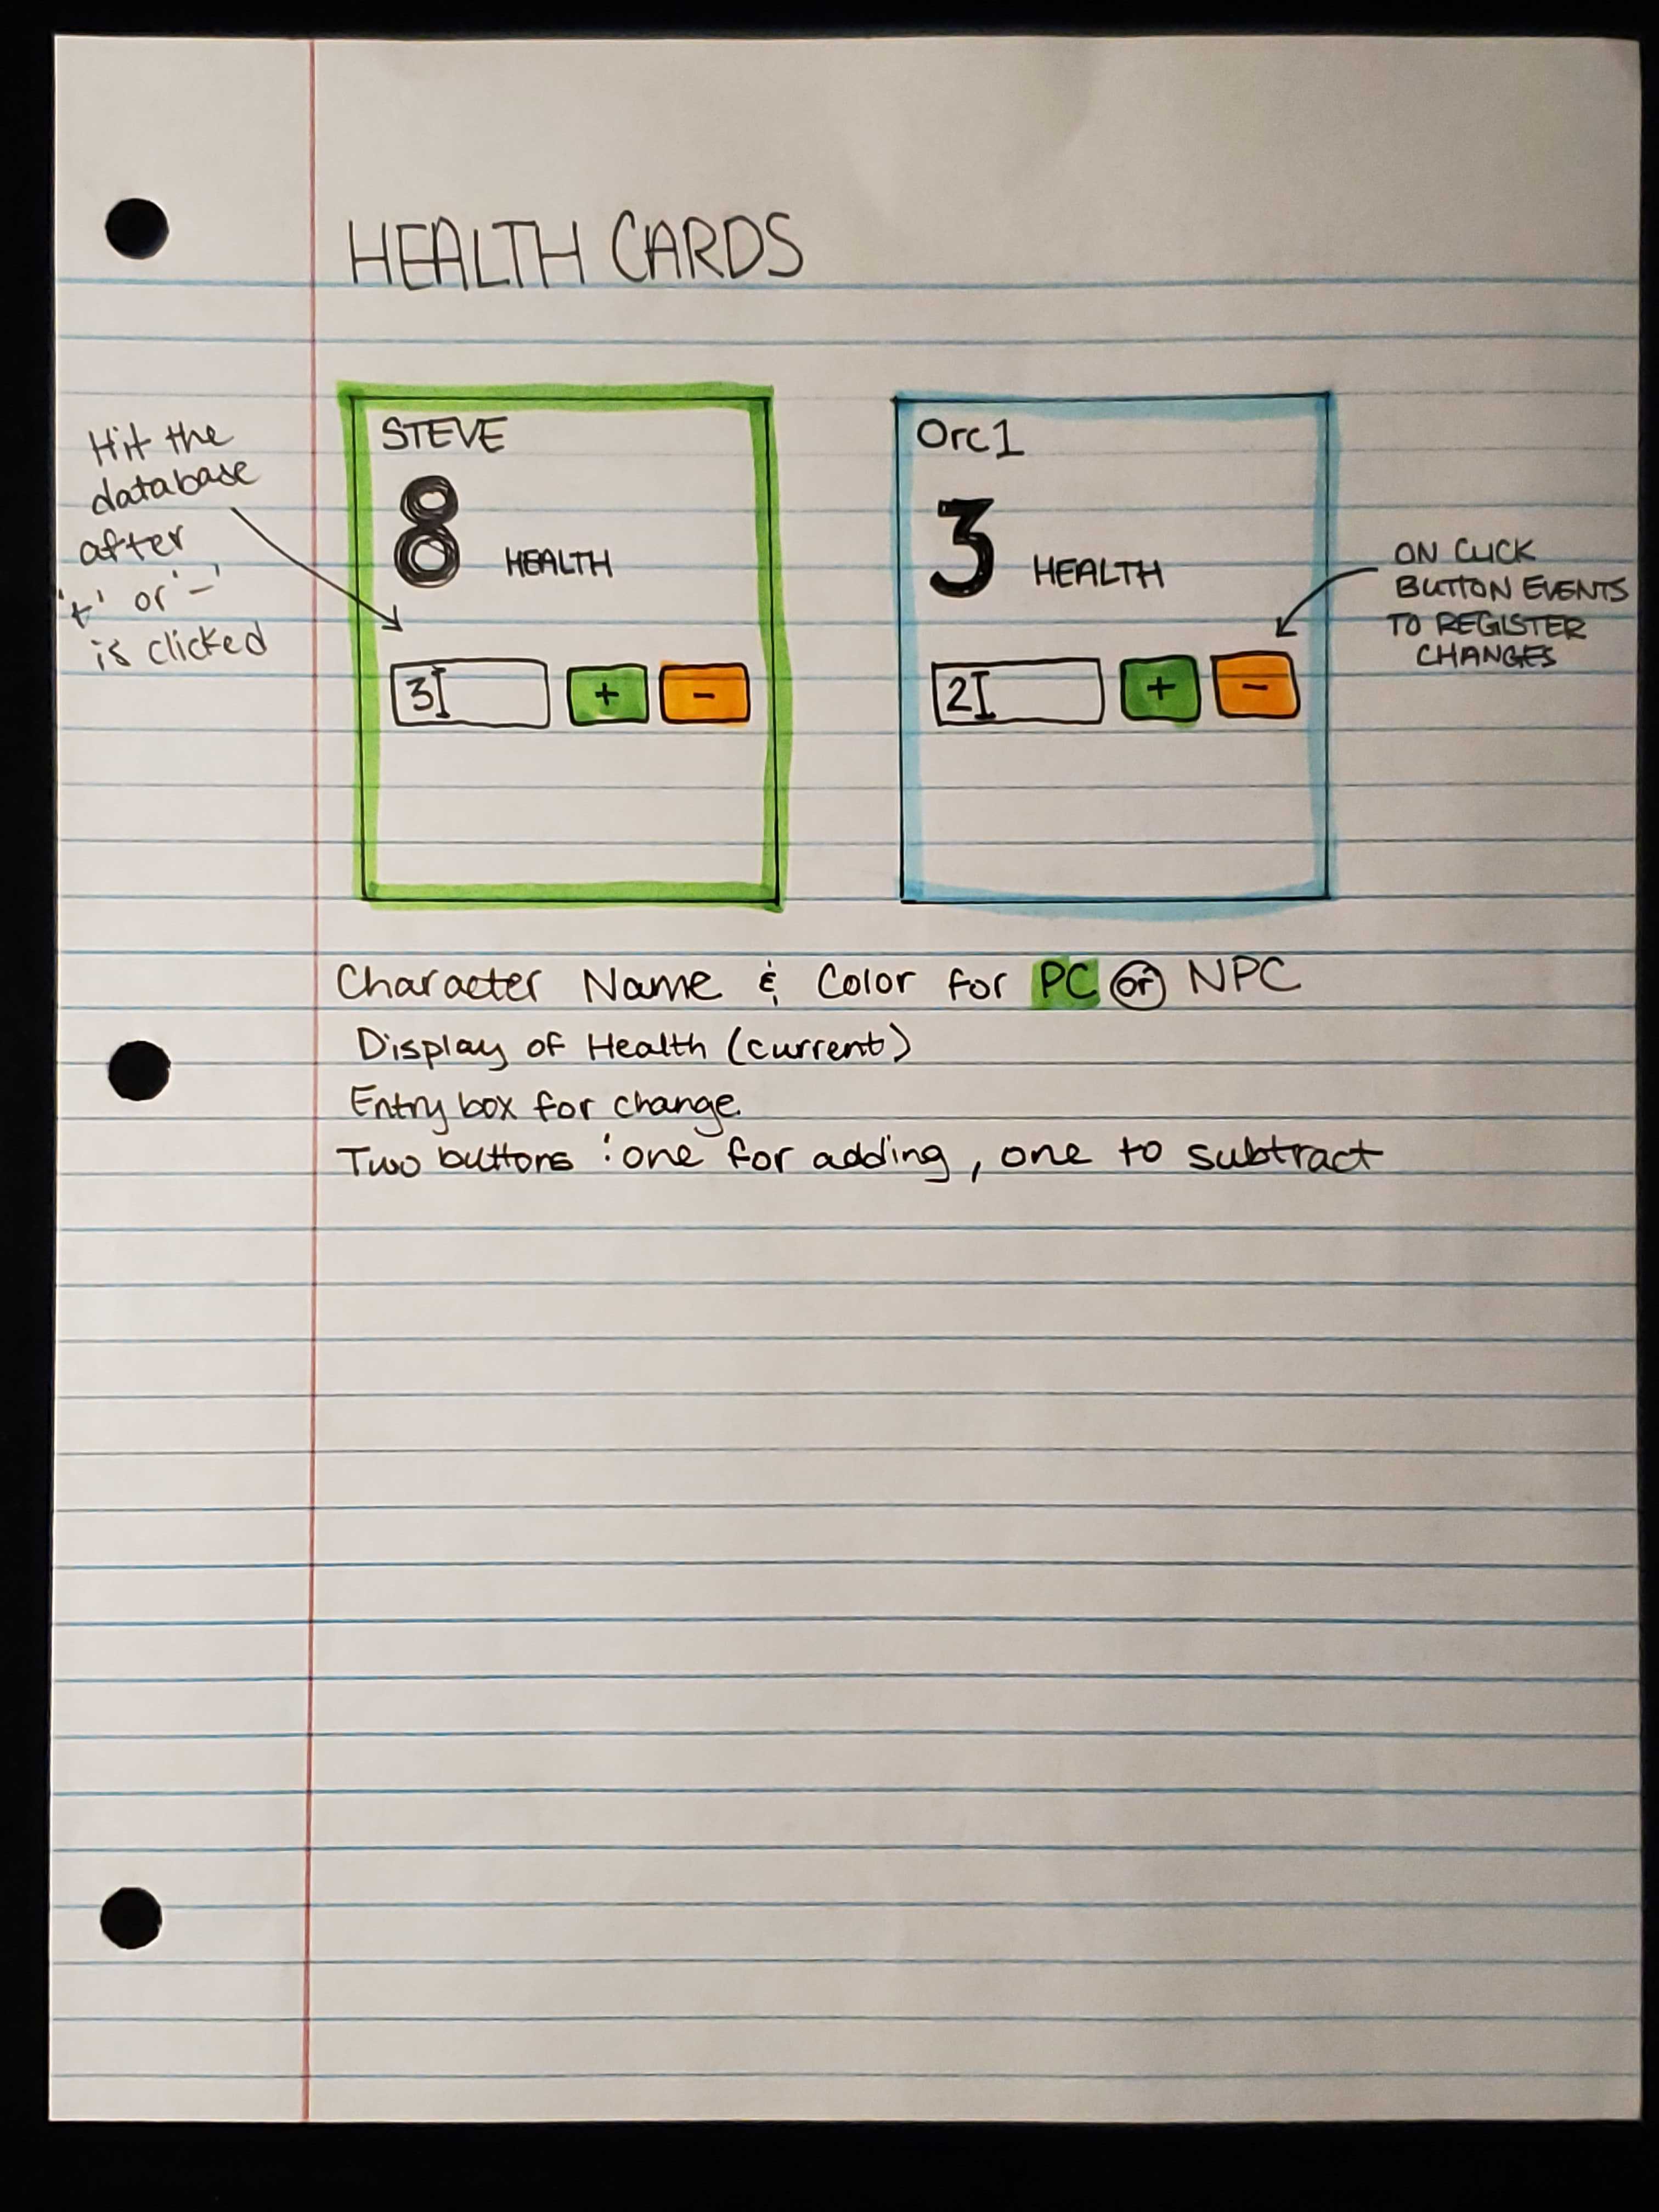 HEALTH CARDS
Hit the
database
after
'+' or '-'
is clicked
STEVE
8 HEALTH
3 + -
Orc1
3 HEALTH
2 + -
ON CLICK
BUTTON EVENTS
TO REGISTER
CHANGES
Character Name & Color for PC or NPC
Display of Health (current)
Entry box for change.
Two buttons : one for adding, one to subtract